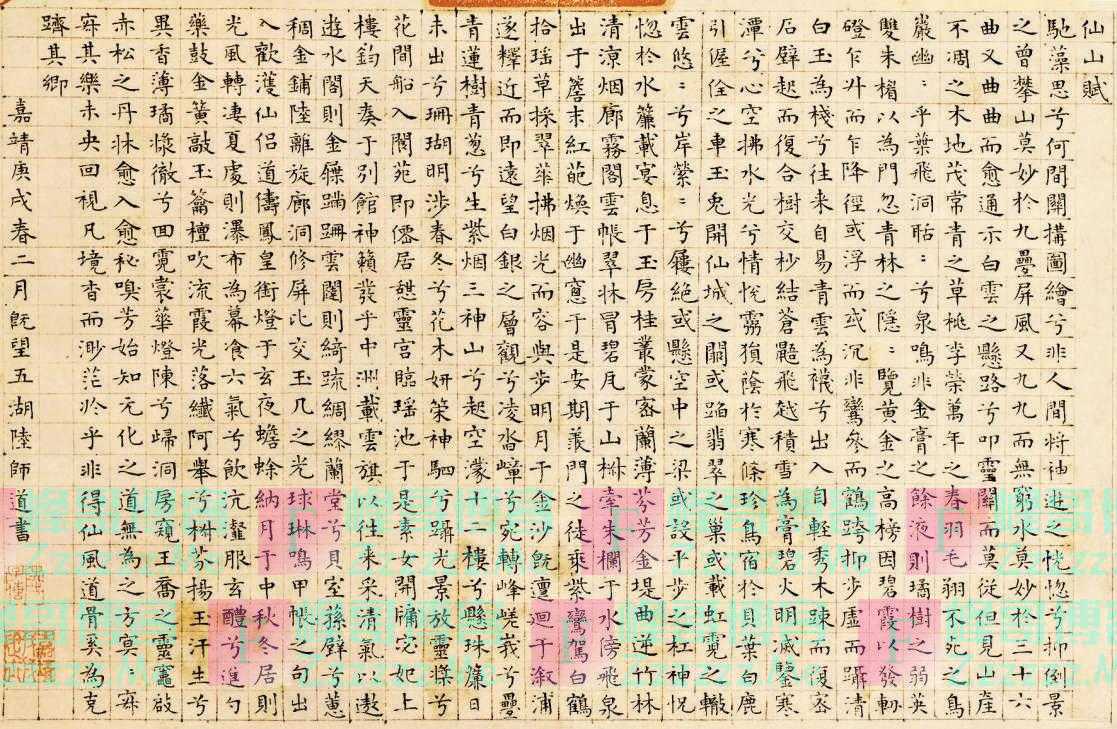 仙山賦
馳藻思兮何間關搆圖繪兮非人間將神遊之恍惚兮抑倒景
之曾攀山莫妙於九疊屏風又九九而無窮水莫妙於三十六
曲又曲曲而愈通示白雲之懸路兮叩靈關而莫從但見山產
不凋之木地茂常青之草桃李榮萬年之春羽毛翔不死之鳥
巖幽〻乎葉飛洞聒〻兮泉鳴非金膏之餘液則璚樹之弱英
雙朱楣以為門忽青林之隱〻覽黃金之高榜因碧霞以發軔
磴乍升而乍降徑或浮而或沉非鸞參而鶴跨抑步虛而躡清
白玉為棧兮往來自易青雲為襪兮出入自輕秀木踈而復密
石壁起而復合樹交杪結蒼鼯飛越積雪為膏碧火明滅鑒寒
潭兮心空拂水光兮情悅霧猿蔭於寒條珍鳥宿於貝葉白鹿
引偓佺之車玉兔開仙城之闢或蹈翡翠之巢或載虹霓之轍
雲悠〻兮岸縈〻兮鏤絕或懸空中之梁或設平步之杠神怳
惚於水簾載宴息于玉房桂叢蒙密蘭薄芬芳金堤曲逆竹林
清涼烟廊霧閣雲帳翠牀冒碧瓦于山椒牽朱欄于水傍飛泉
出于簷末紅葩煥于幽窻于是安期羨門之徒乘紫鸞駕白鶴
拾瑤草採翠華拂烟光而容與步明月于金沙旣邅迴于溆浦
遂釋近而即遠望白銀之層觀兮凌嵓嶂兮宛轉峰嵯峩兮疊
青蓮樹青蔥兮生紫烟三神山兮起空濛十二樓兮懸珠簾日
未出兮珊瑚明涉春冬兮花木妍策神駟兮躡光景放靈槳兮
花間船入閬苑即僊居憩靈宮臨瑤池于是素女開牖宓妃上
樓鈞天奏于別館神籟發乎中洲載雲旗以往来采清氣以遨
遊水閣則金鑠蹣跚雲闥則綺疏綢繆蘭堂兮貝室蓀壁兮蕙
稠金鋪陸離旋廊洞修屏比交玉几之光球琳鳴甲帳之句出
入歡濩仙侶道儔鳳皇銜燈于玄夜蟾蜍納月于中秋冬居則
光風轉淒夏處則瀑布為幕飡六氣兮飲沆瀣服玄醴兮進勺
藥鼓金簧敲玉籥檀吹流霞光落纖阿舉兮椒芬揚玉汗生兮
異香薄璚漿徹兮回霓裳華燈陳兮歸洞房窺王喬之靈竈啟
赤松之丹牀愈入愈秘嗅芳始知元化之道無為之方冥〻寐
寐其樂未央回視凡境杳而渺茫於乎非得仙風道骨奚為克
躋其鄉
嘉靖庚戌春二月旣望五湖陸師道書